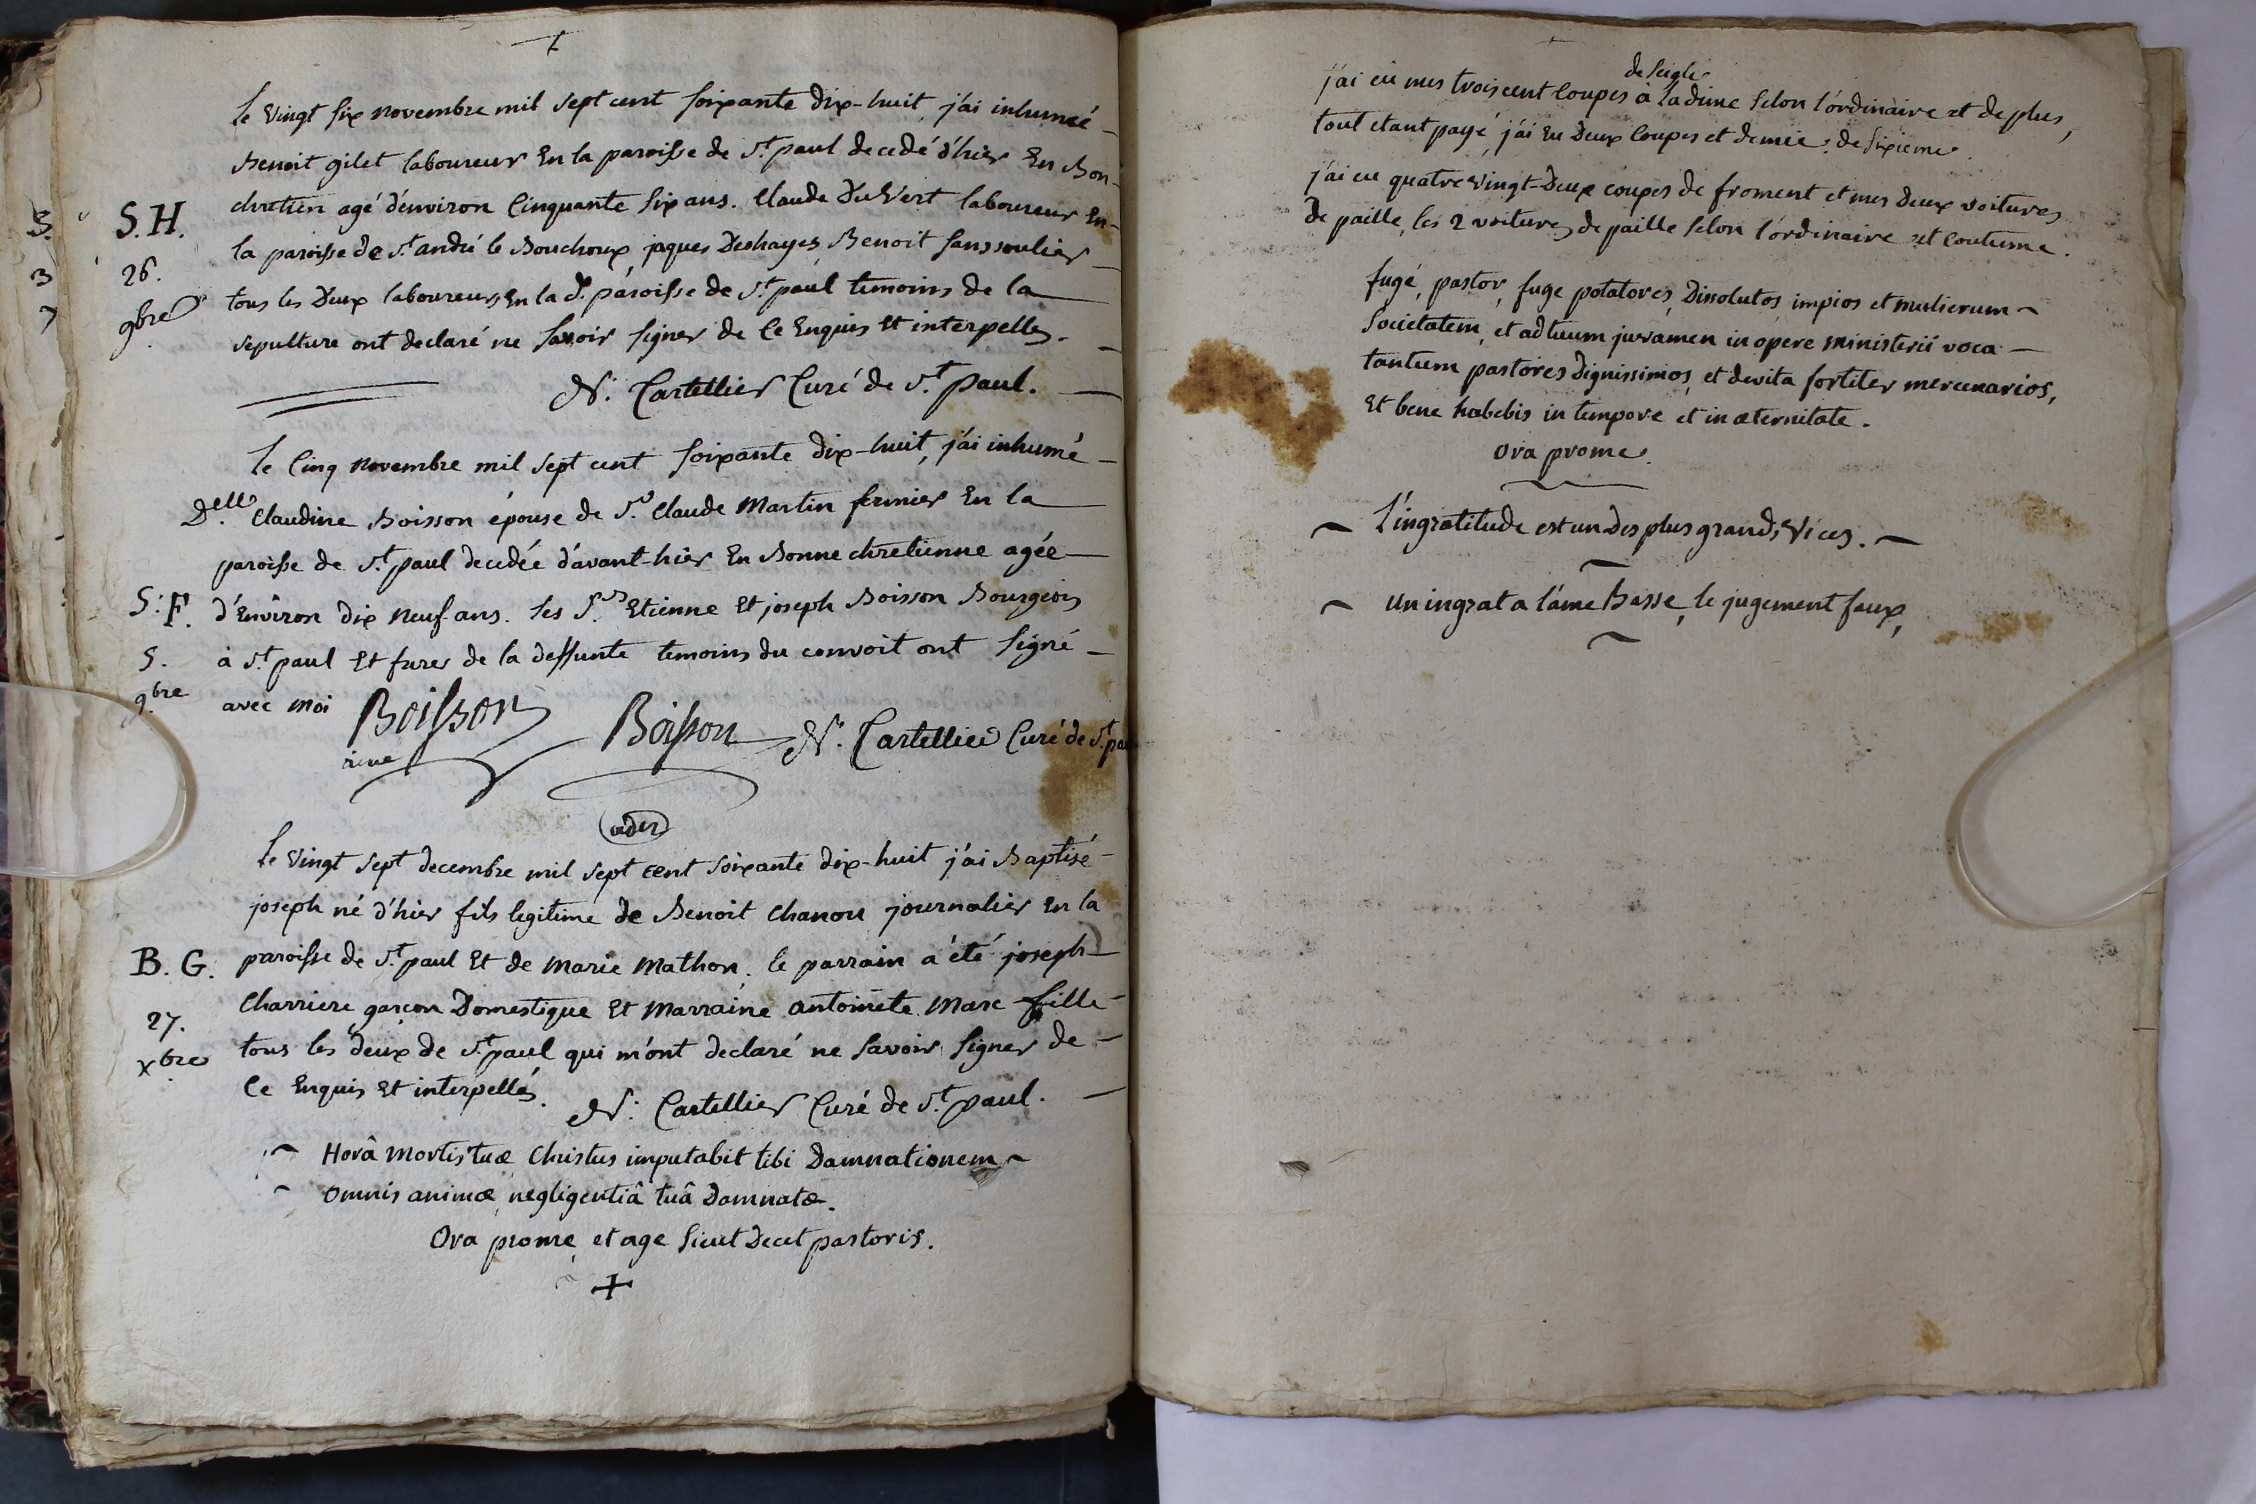 +
le vingt six novembre mil sept cent soixante dix-huit, j'ai inhumé
Benoit gilet laboureur En la paroisse de St. paul decedé d'hier En Bon
chretien agé d'environ Cinquante six ans. Claude DuVert laboureur En
la paroisse de St. andré le Bouchoux, jaques Deshayes, Benoit sanssoulier
tous les Deux laboureurs En la de. paroisse de St. paul temoins de la
sepulture ont declaré ne savoir signer de Ce Enquis Et interpellés.
N. Cartellier Curé de St. paul.
S. H.
26.
9bre
le Cinq novembre mil sept cent soixante dix-huit, j'ai inhumé
Delle. Claudine Boisson épouse de Sr. Claude Martin fermier En la
paroisse de St. paul decedée d'avant-hier En Bonne chretienne agée
d'Environ dix neuf ans. les Srs. Etienne Et joseph Boisson Bourgeois
à St. paul Et freres de la deffunte temoins du convoit ont signé
avec moi
Boisson Boisson N. Cartellier Curé de St. pa
S. F.
5.
9bre
le vingt sept decembre mil sept cent soixante dix-huit j'ai Baptisé
joseph né d'hier fils legitime de Benoit Chanon journalier En la
paroisse de St. paul Et de Marie Mathon. le parrain a été joseph
Charriere garçon Domestique Et Marraine antoinete Marc fille
tous les deux de St. paul qui m'ont declaré ne savoir signer de
Ce Enquis Et interpellés.
N. Cartellier Curé de St. paul.
B. G.
27.
xbre
Horâ mortis tuæ Christus imputabit tibi Damnationem
omnis animæ negligentiâ tuâ Damnatæ.
Ora prome et age sicut Decet pastoris.
+
de seigle
j'ai eü mes trois cent Coupes à la dime selon l'ordinaire et de plus,
tout etant payé, j'ai Eu Deux Coupes et demie de sixieme.
j'ai eu quatre vingt-Deux coupes de froment et mes deux voitures
de paille, les 2 voitures de paille selon l'ordinaire et Coutume.
fugé, pastor, fuge potatores, Dissolutos, impios et mulierum
societatem, et ad tuum juvamen in opere ministerii voca
tantum pastores dignissimos, et devita fortiter mercenarios,
Et bene habebis in tempore et in æternitate.
Ora prome.
l'ingratitude est un des plus grands Vices.
un ingrat a l'ame Basse, le jugement faux,